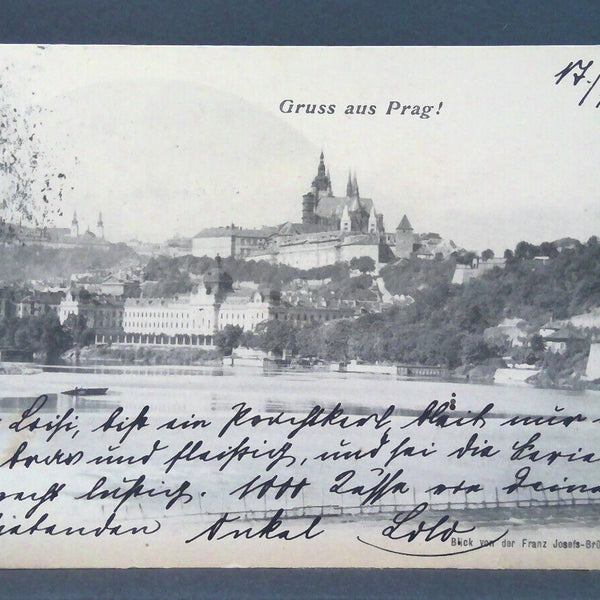 17./
Gruss aus Prag!
Loisi, bist ein Prachtkerl, bleib nur
brav und fleißig, und sei die Ferie
recht lustig. 1000 Küsse von Deine
liebenden Onkel Lolo
Blick von der Franz Josefs-Brü